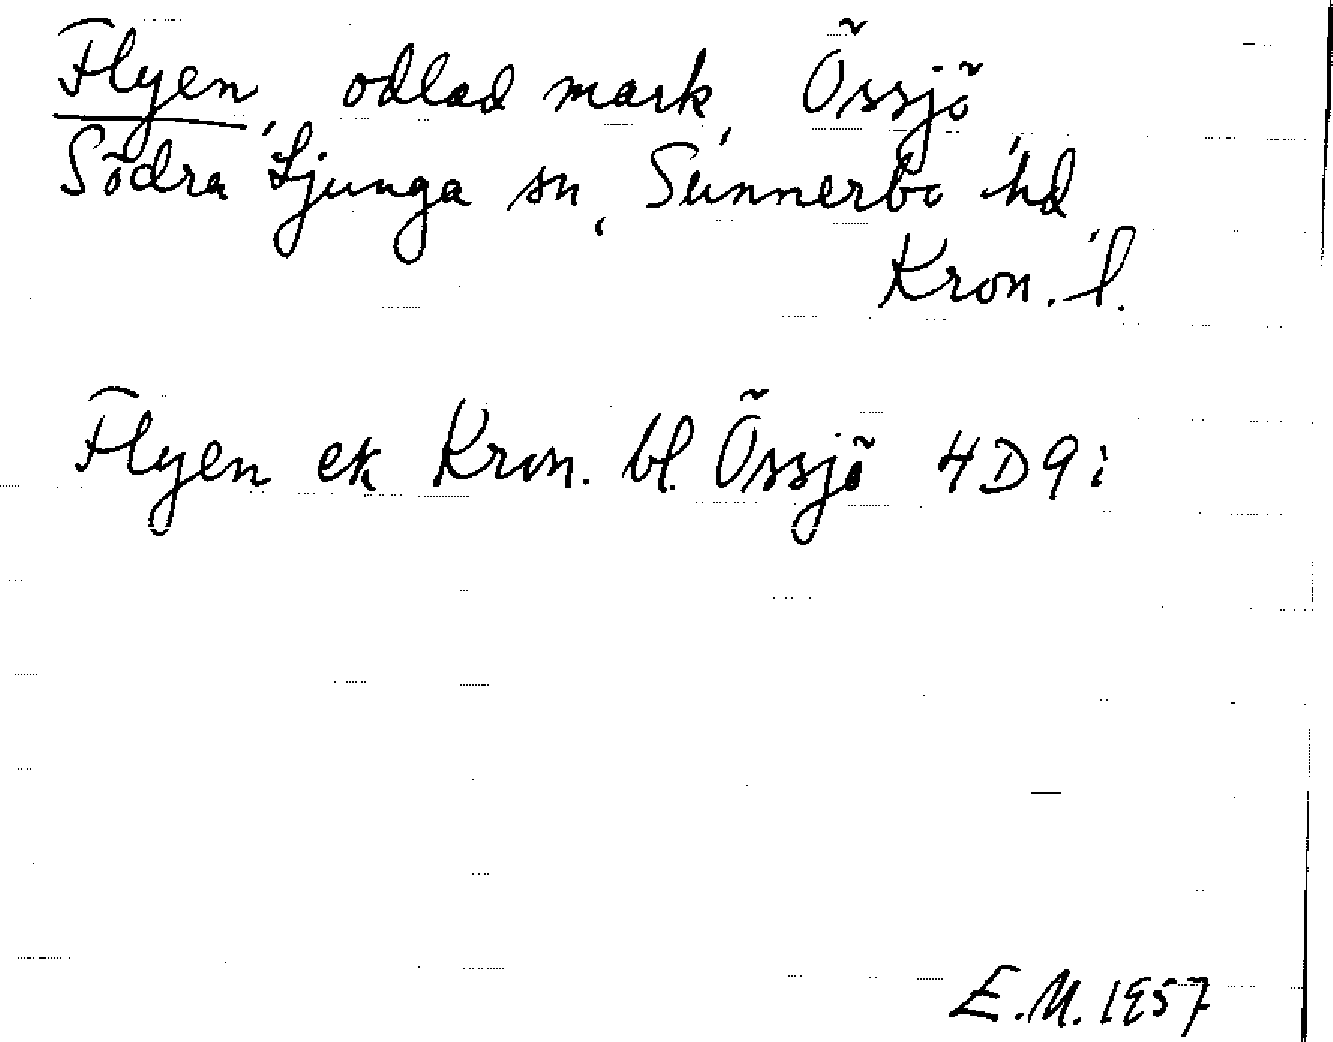 Flyen, odlad mark, Össjö,
Södra Ljunga sn, Sunnerbo hd,
Kron. l.
Flyen ek Kron. bl. Össjö 4D9i
E.M. 1957